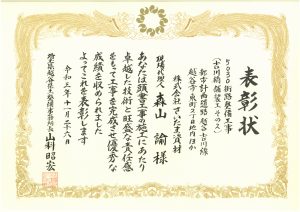 表彰状
5030街路整備工事
(古川橋舗装工その2)
都市計画道路越谷吉川線
越谷市東町2丁目地内ほか
株式会社さいたま資材
現場代理人 森山 諭 様
あなたは頭書工事の施工にあたり
卓越した技術と旺盛な責任感
をもって工事を完成させ優秀な
成績を収められました
よってこれを表彰します
令和三年十一月二十六日
埼玉県越谷県土整備事務所長 山科昭宏